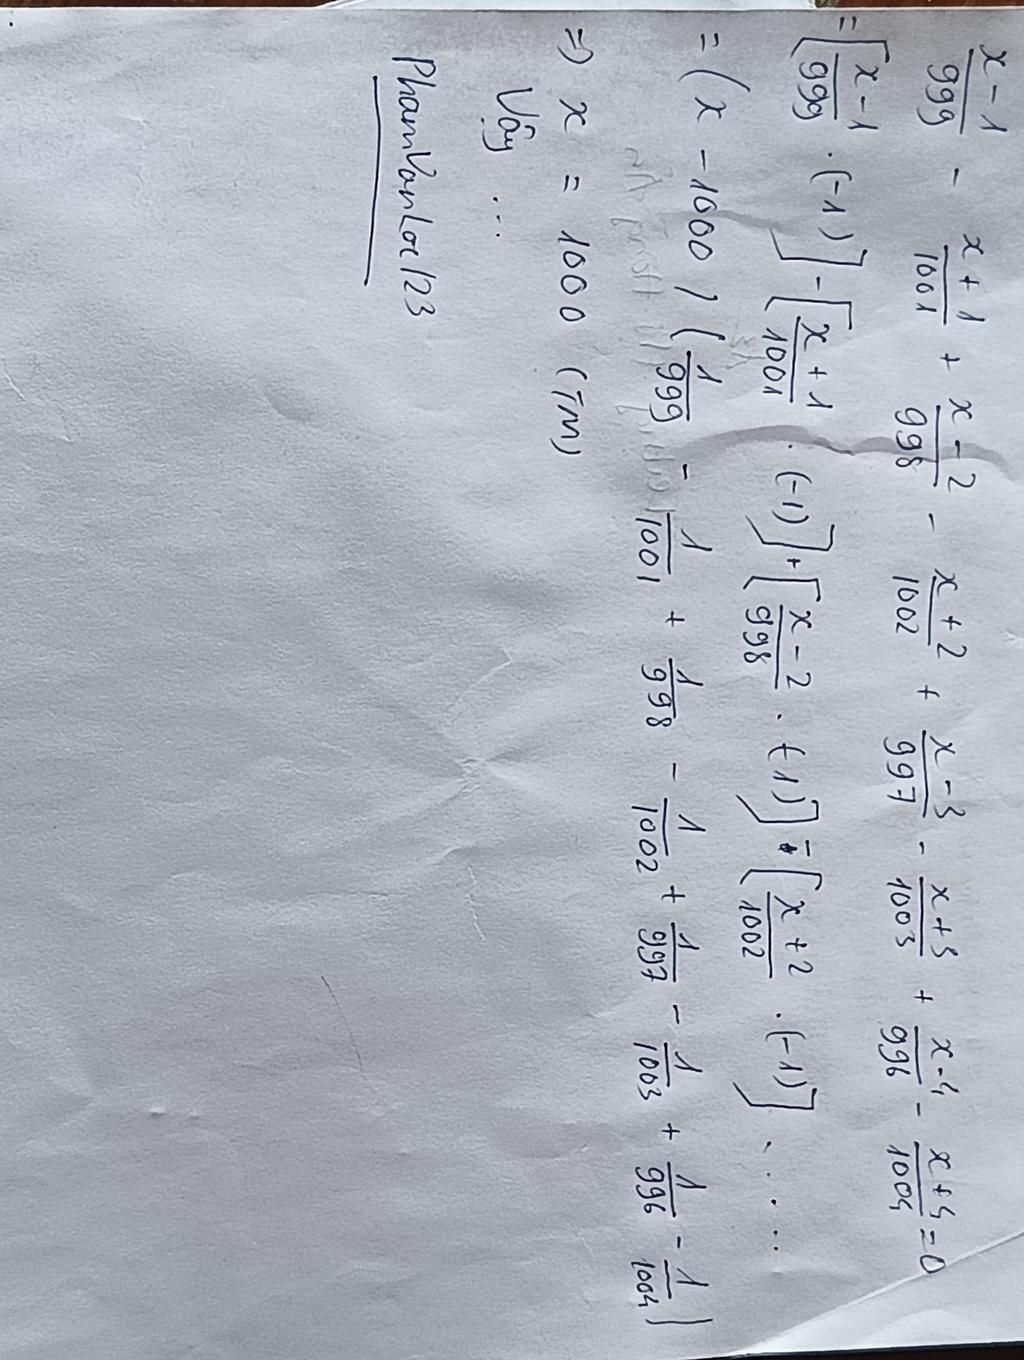 \frac{x-1}{999} - \frac{x+1}{1001} + \frac{x-2}{998} - \frac{x+2}{1002} + \frac{x-3}{997} - \frac{x+3}{1003} + \frac{x-4}{996} - \frac{x+4}{1004} = 0
= [\frac{x-1}{999} . (-1)] - [\frac{x+1}{1001} . (-1)] + [\frac{x-2}{998} . (-1)] - [\frac{x+2}{1002} . (-1)] .....
= (x - 1000) (\frac{1}{999} - \frac{1}{1001} + \frac{1}{998} - \frac{1}{1002} + \frac{1}{997} - \frac{1}{1003} + \frac{1}{996} - \frac{1}{1004})
=> x = 1000 (TM)
Vậy ...
PhamVanLoc123